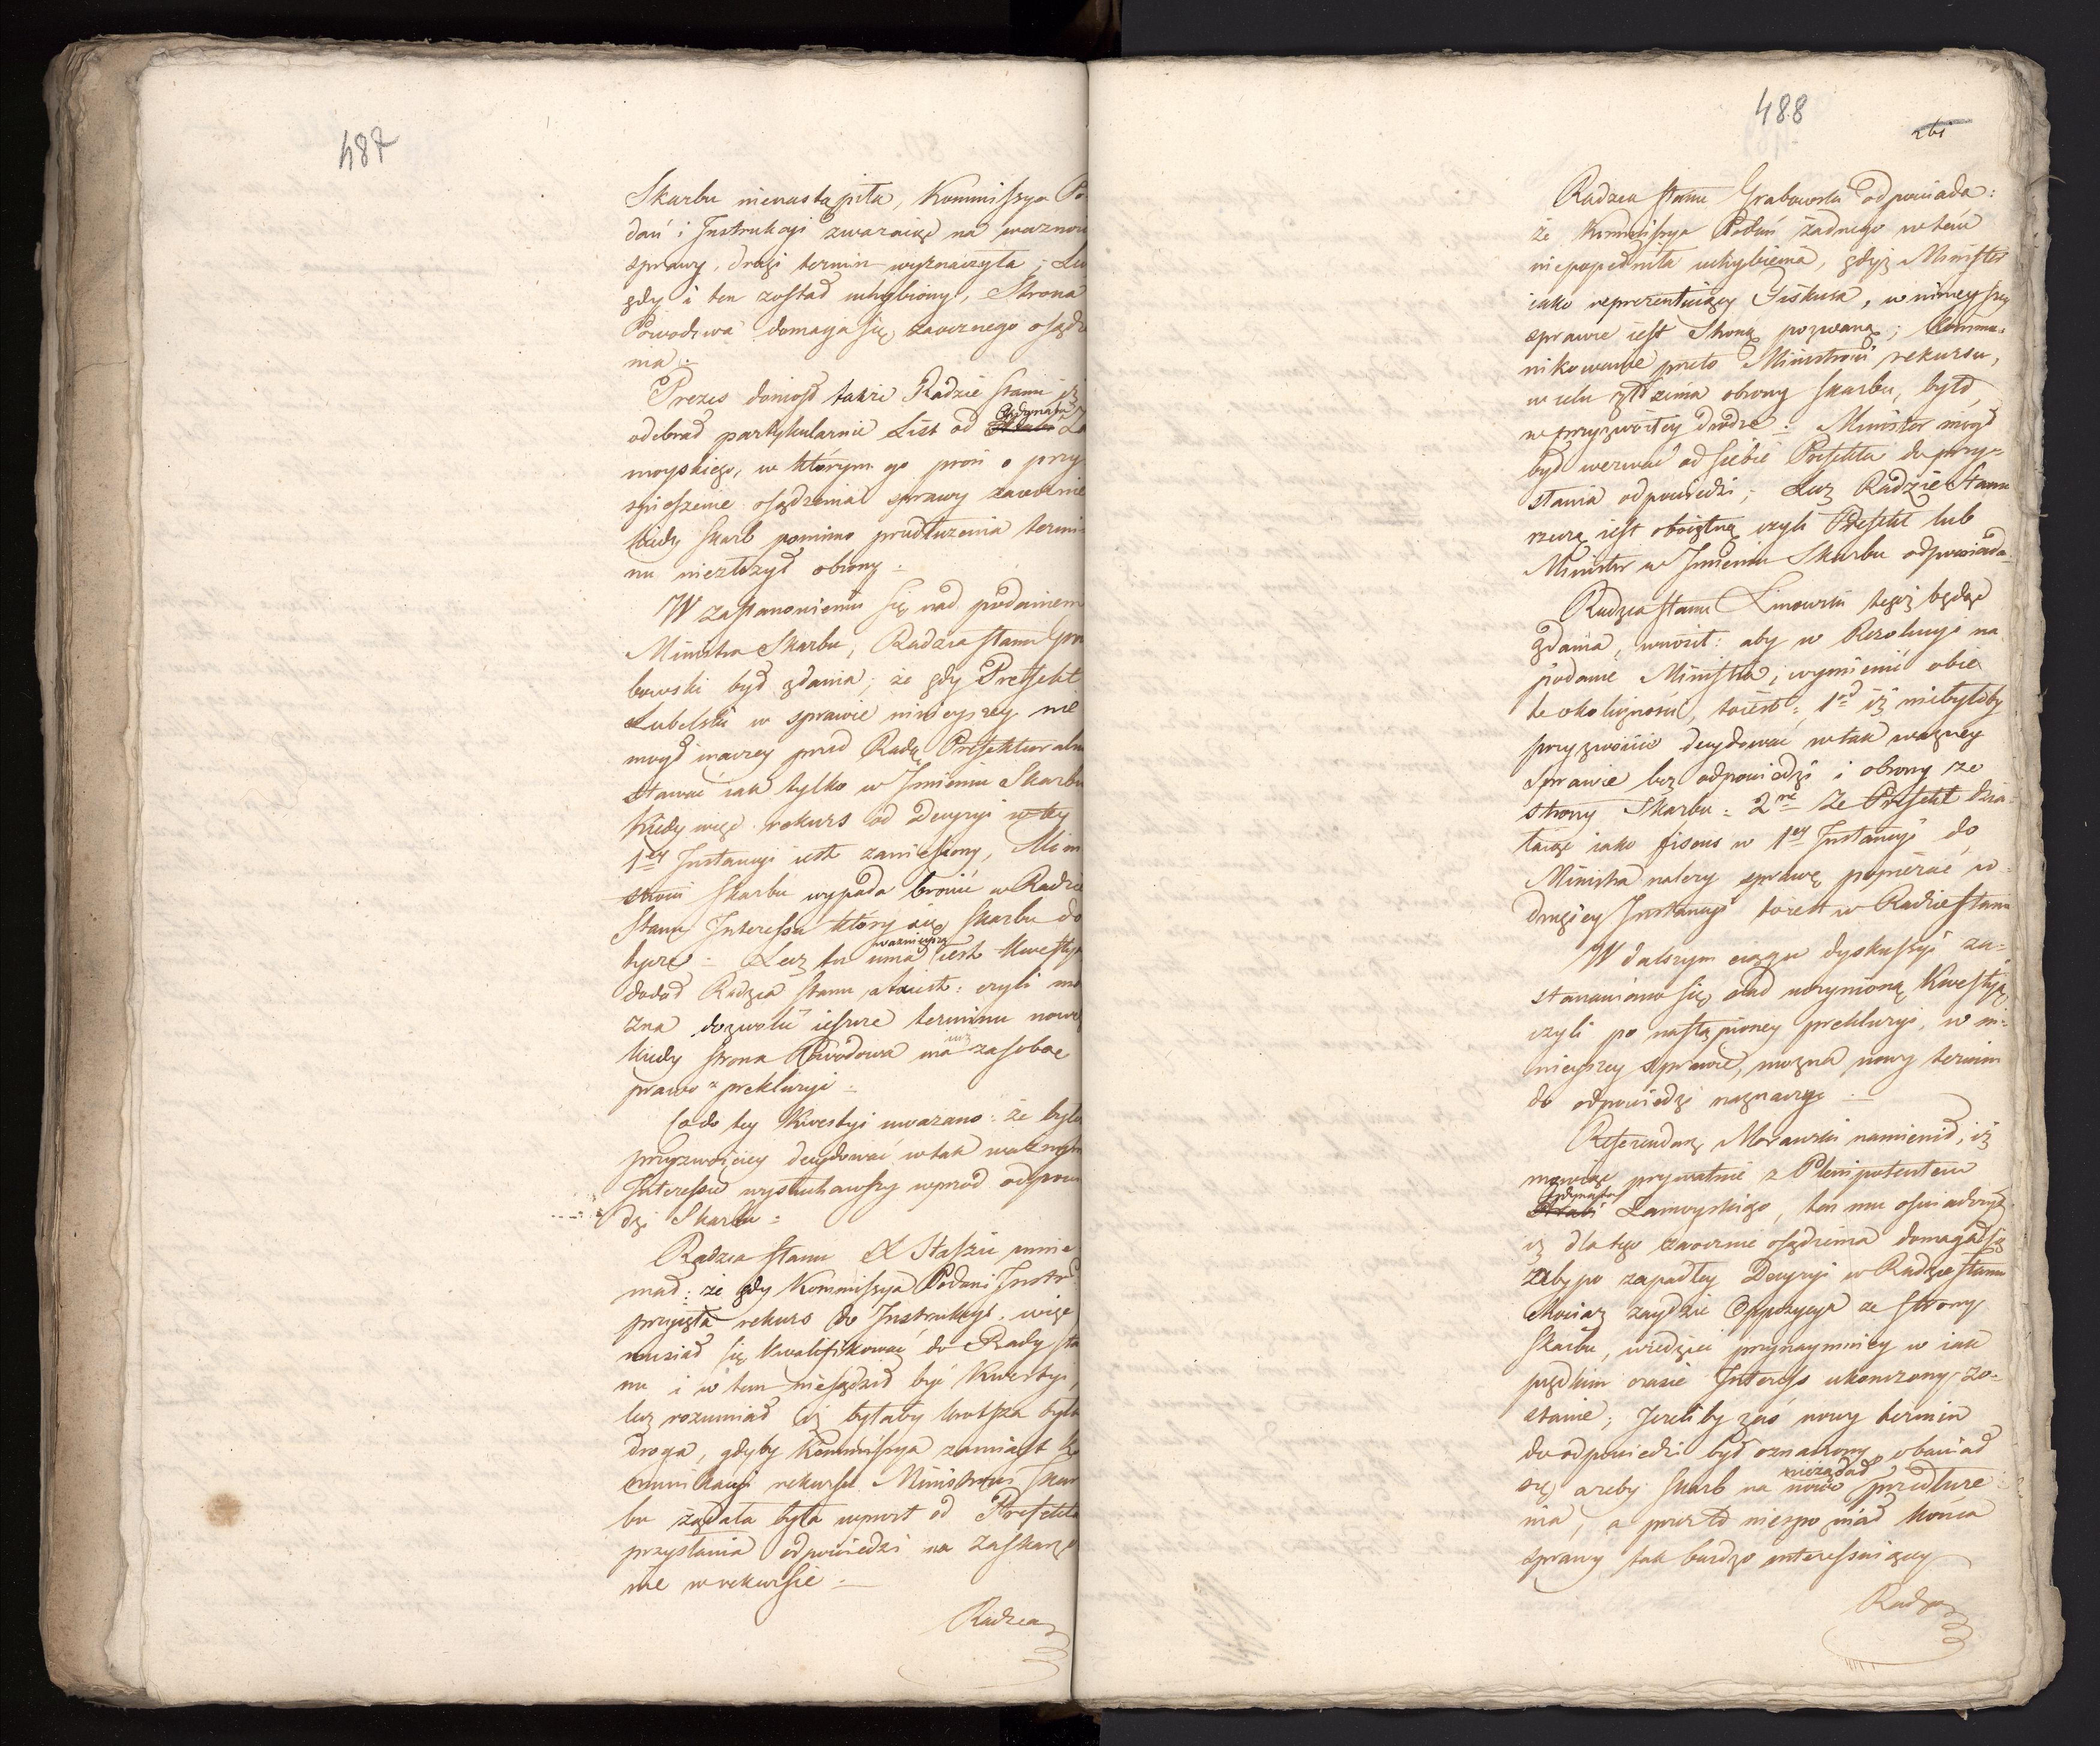 487
Skarbu nienastąpiła, Kommissya Po
dań i Instrukcyi zwaraiąc na ważność
sprawy, drugi termin wyznaczyła; Lecz
gdy i ten został uchybiony, Strona
Powodowa domaga się zaocznego osądze
nia.
Prezes doniosł także Radzie Stanu iż
odebrał partykularnie List od Ordynata Za
moyskiego, w którym go prosi o przy
spieszenie osądzenia sprawy zaocznie
kiedy Skarb pomimo przedłużenia termi
nu niezłożył obrony.
W zastanowieniu się nad podaniem
Ministra Skarbu, Radzca Stanu Gra
bowski był zdania; że gdy Prefekt
Lubelski w sprawie ninieyszey nie
mogł inaczey przed Radą Prefekturalną
stawać iak tylko w Imieniu Skarbu
Kiedy więc rekurs od Decyzyi w tey
1ey Instancyi iest zaniesiony, Mini
strowi Skarbu wypada bronić w Radzie
Stanu Interessu który się Skarbu do
tycze. Lecz tu inna ważnieysza iest kwestya
dodał Radzca Stanu, a to iest: czyli mo
żna dozwolić ieszcze terminu nowego
kiedy Strona Powodowa ma iuż za sobą
prawo prekluzyi.
Co do tey Kwestyi uważano: że było
przyzwoiciey decydować w tak ważnym
Interessie wysłuchawszy wprzod odpowie
dzi Skarbu.
Radzca Stanu X Staszic mnie
mał: że gdy Kommissya Podań i Instr:
przyięła rekurs do Instrukcyi, więc
musiał się kwalifikować do Rady Sta
nu i w tem niesądził być Kwestyi,
lecz rozumiał iż byłaby krotsza była
droga, gdyby Kommissya zamiast Ko
munikacyi rekursu Ministrowi Skar
bu żądała była wprost od Prefekta
przysłania odpowiedzi na zaskarże
nie w rekursie.
Radzca
488
261
Radzca Stanu Grabowski odpowiada:
że Kommissya Podań żadnego w tem
niepopełniła uchybienia, gdyż Minister
iako reprezentuiący Fiskusa, w ninieyszey
sprawie iest Stroną pozwaną; kommu=
nikowanie przeto Ministrowi rekursu,
w celu złożenia obrony Skarbu, było
w przyzwoitey drodze. Minister mogł
był wezwać od siebie Prefekta do przy=
słania odpowiedzi; Lecz Radzie Stanu
rzeczą iest oboiętną czyli Prefekt lub
Minister w Imieniu Skarbu odpowiada.
Radzca Stanu Linowski tegoż będąc
zdania, wnosił: aby w Rezolucyi na
podanie Ministra, wymienić obie
te okoliczności, to iest: 1od iż niebyłoby
przyzwoicie decydować w tak ważney
sprawie bez odpowiedzi i obrony ze
strony Skarbu: 2re Że Prefekt dzia=
łaiąc iako fiscus w 1ey Instancyi do
Ministra należy sprawę popierać w
drugiey Instancyi to iest w Radzie Stanu
W dalszym ciągu dyskussyi za=
stanawiano się nad uczynioną Kwestyą
czyli po nastąpioney prekluzyi, w ni=
nieyszey sprawie, można nowy termin
do odpowiedzi naznaczyć.
Referendarz Morawski namienił, iż
mówiąc prywatnie z Plenipotentem
Ordynata Zamoyskiego, ten mu oświadczył
iż dla tego zaocznie osądzenia domagał się
żeby po zapadłey Decyzyi w Radzie Stanu
chociaż zaydzie Oppozycya ze strony
Skarbu, wiedzieć przynaymniey w iak
prędkim czasie Interess ukończony zo=
stanie; Jeżeliby zaś nowy termin
do odpowiedzi był oznaczony, obawiał
się ażeby Skarb na nowo nieżądał przedłuże=
nia, a przez to niespoznał końca
sprawy tak bardzo interessuiącey
Radzca